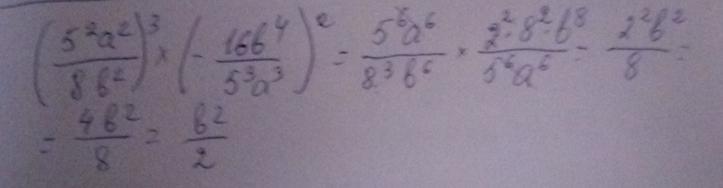 (5²a²/8b²)³ × (-16b⁴/5³a³)² = 5⁶a⁶/8³b⁶ × 2²·8²·b⁸/5⁶a⁶ = 2²b²/8 =
= 4b²/8 = b²/2